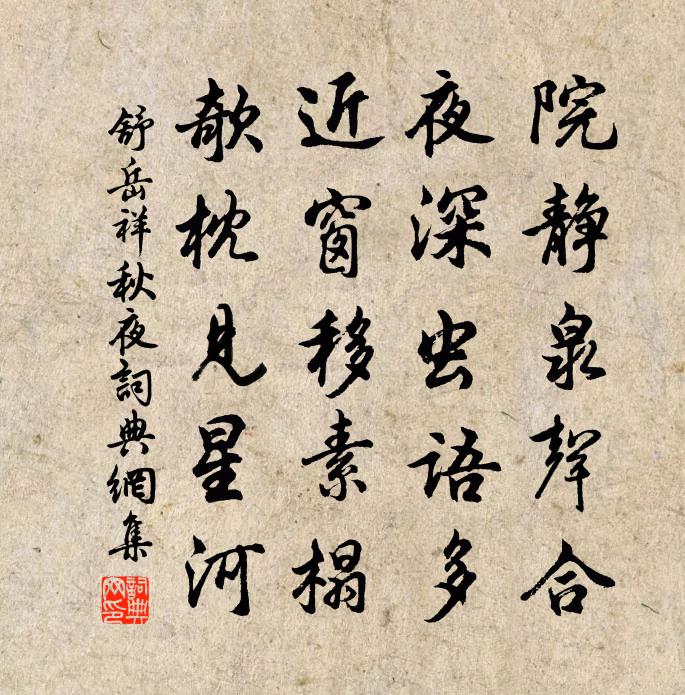 院静泉聲合
夜深虫语多
近窗移素榻
欹枕見星河
舒岳祥秋夜詞典網集
詞典
网印